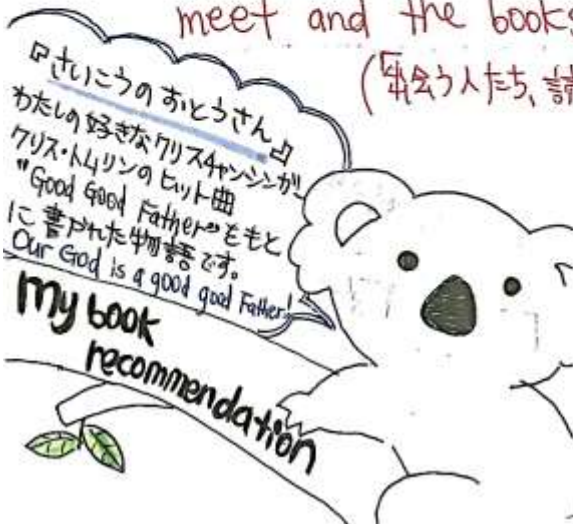 meet and the books
(「出会う人たち、読
『さいこうのおとうさん』
わたしの好きなクリスチャンシンガー
クリス・トムリンのヒット曲
"Good Good Father"をもと
に書かれた物語です。
Our God is a good good Father!
my book
recommendation